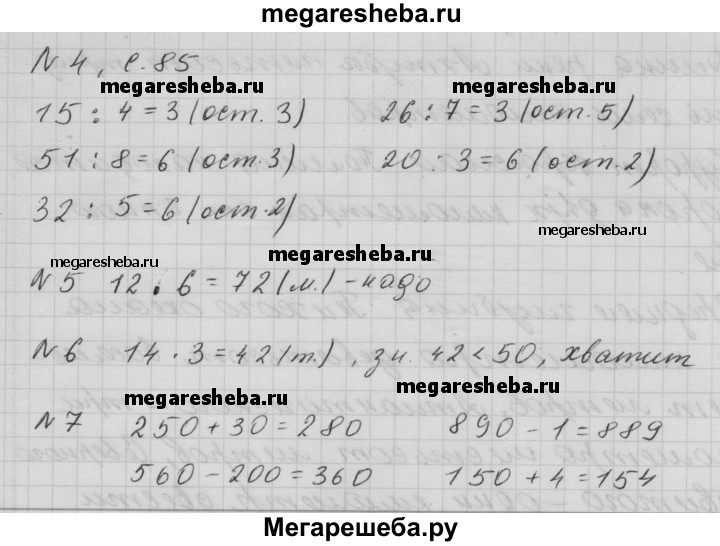 megaresheba.ru
№ 4, с. 85
megaresheba.ru megaresheba.ru
15 : 4 = 3 (ост. 3) 26 : 7 = 3 (ост. 5)
51 : 8 = 6 (ост. 3) 20 : 3 = 6 (ост. 2)
32 : 5 = 6 (ост. 2)
megaresheba.ru megaresheba.ru megaresheba.ru
№ 5 12 · 6 = 72 (м.) - надо
№ 6 14 · 3 = 42 (т.), зн. 42 < 50, хватит
megaresheba.ru megaresheba.ru
№ 7 250 + 30 = 280 890 - 1 = 889
560 - 200 = 360 150 + 4 = 154
megaresheba.ru megaresheba.ru
Мегарешеба.ру